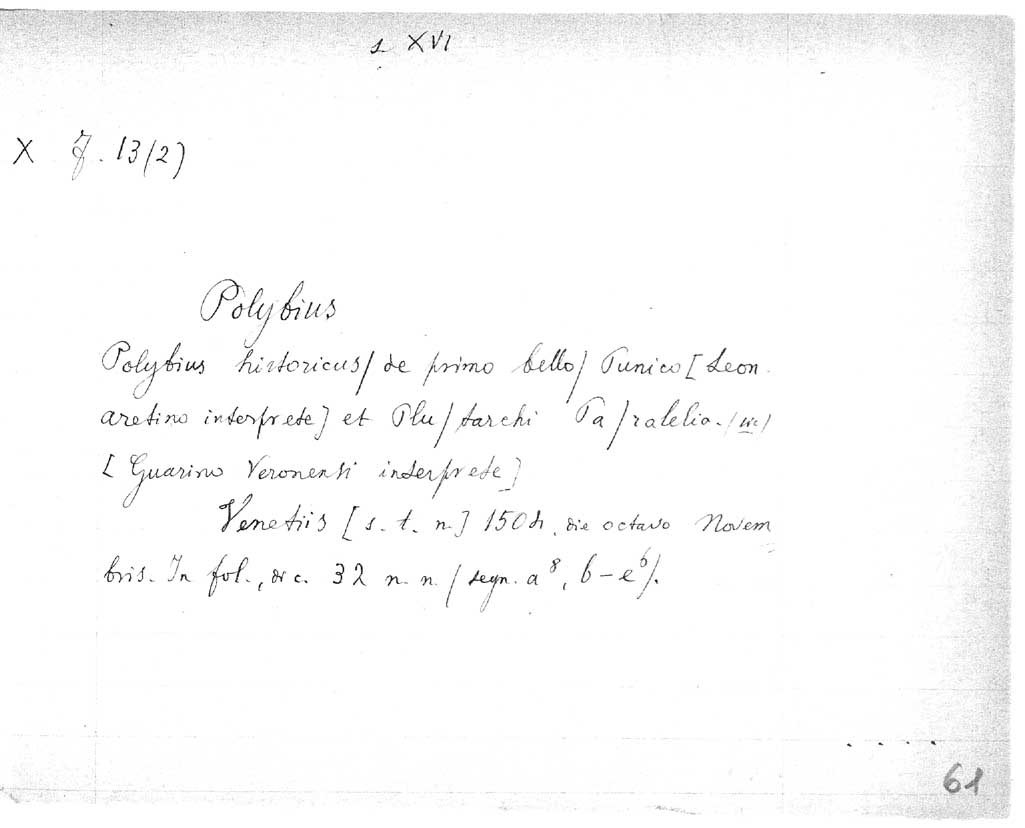 s XVI
X F. 13(2)
Polybius
Polybius historicus/ de primo bello/ Punico [Leon.
aretino interprete] et Plu/tarchi Pa/ralelia. (sic)
[Guarino Veronensi interprete]
Venetiis [s. t. n.] 1504, die octavo Novem
bris. In fol., di c. 32 n. n. (segn. a⁸, b-e⁶).
61